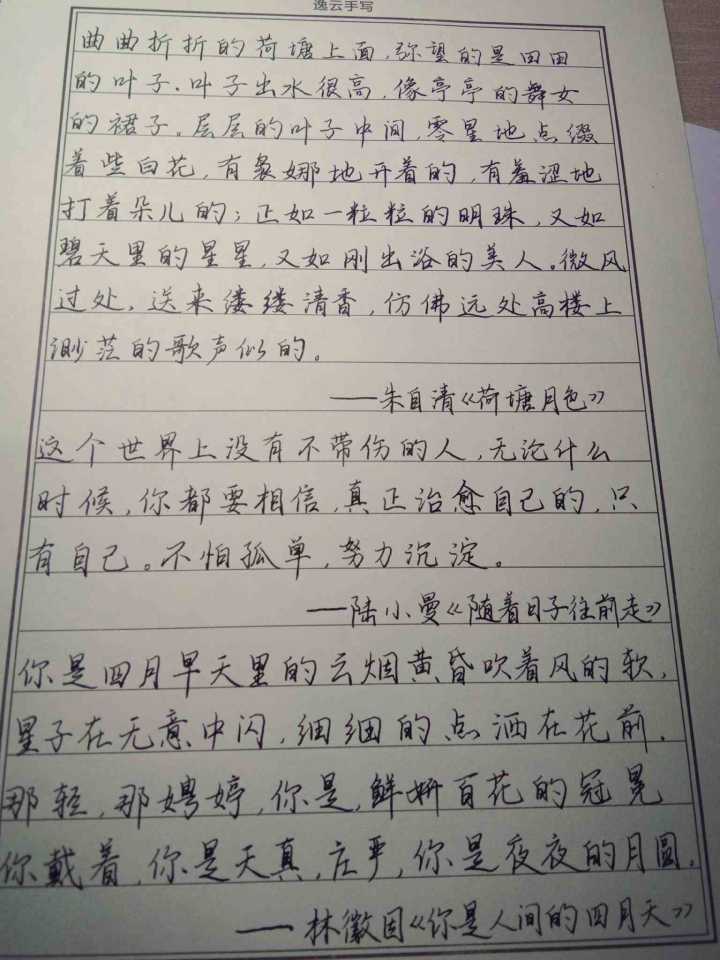 逸云手写
曲曲折折的荷塘上面,弥望的是田田
的叶子.叶子出水很高,像亭亭的舞女
的裙子。层层的叶子中间,零星地点缀
着些白花,有袅娜地开着的,有羞涩地
打着朵儿的;正如一粒粒的明珠,又如
碧天里的星星,又如刚出浴的美人。微风
过处,送来缕缕清香,仿佛远处高楼上
渺茫的歌声似的。
——朱自清《荷塘月色》
这个世界上没有不带伤的人,无论什么
时候,你都要相信,真正治愈自己的,只
有自己。不怕孤单,努力沉淀。
——陆小曼《随着日子往前走》
你是四月早天里的云烟黄昏吹着风的软,
星子在无意中闪,细细的点洒在花前.
那轻,那娉婷,你是,鲜妍百花的冠冕
你戴着,你是天真,庄严,你是夜夜的月圆.
——林徽因《你是人间的四月天》